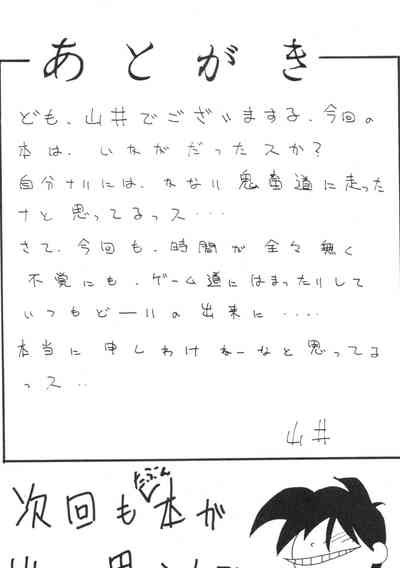 あとがき
ども、山井でございまする、今回の
本は、いかがだったスか?
自分ナリには、かなり鬼畜道に走った
ナと思ってるっス・・・・
さて、今回も、時間が全々無く
不覚にも、ゲーム道にはまったりして
いつもどーりの出来に・・・・
本当に申しわけねーなと思ってる
っス・・
山井
たぶん
次回も本が